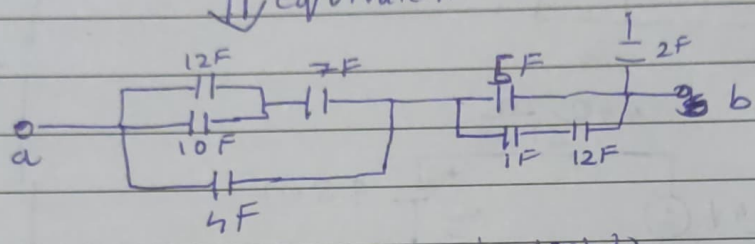 12F
7F
5F
2F
a
10F
b
1F
12F
4F